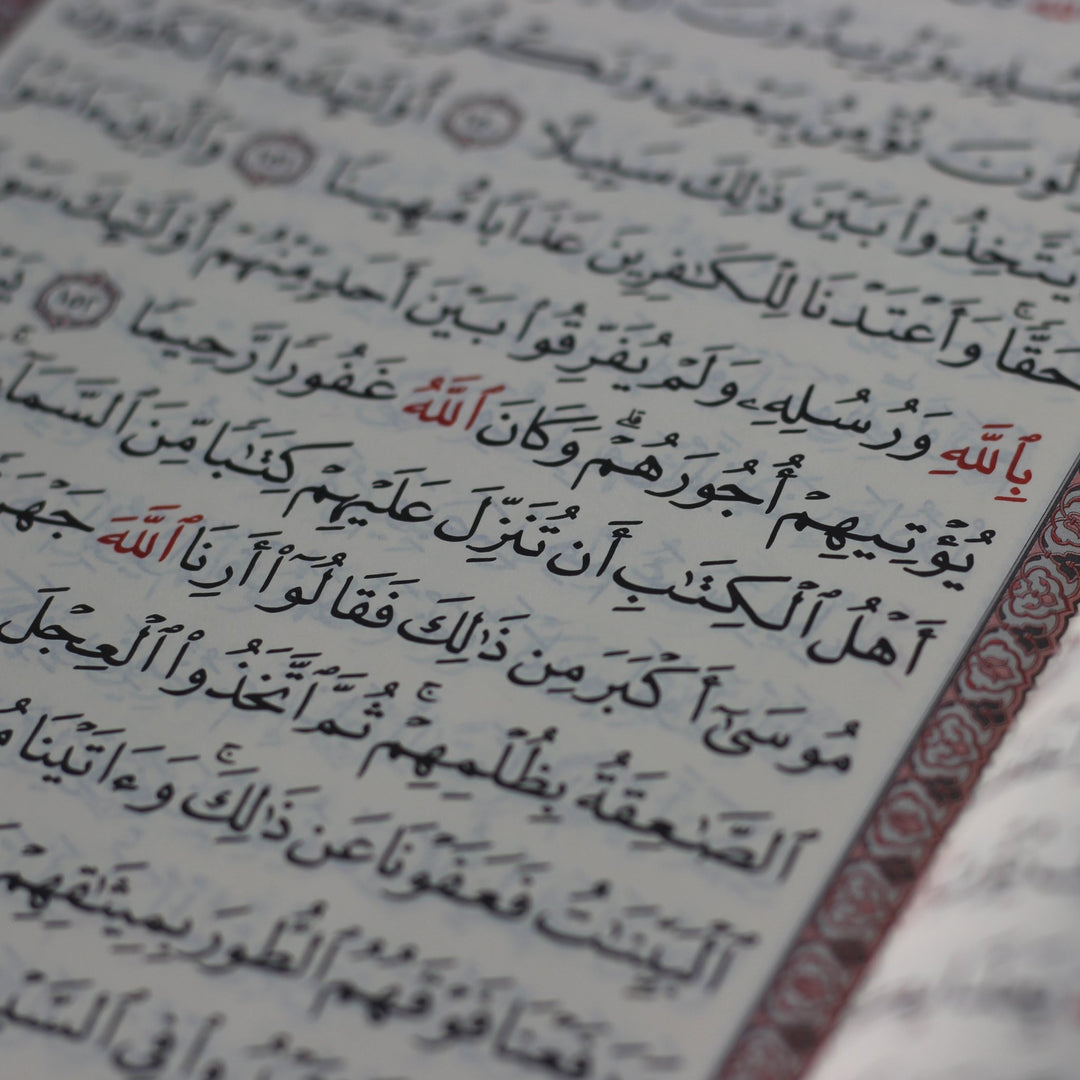 سُلِهِۦ وَيُرِيدُونَ
لُونَ نُؤْمِنُ بِبَعْضٍ وَنَكْفُرُ بِبَعْضٍ
يَتَّخِذُوا۟ بَيْنَ ذَٰلِكَ سَبِيلًا ١٥٠ أُو۟لَٰٓئِكَ هُمُ ٱلْكَٰفِرُونَ
حَقًّا ۚ وَأَعْتَدْنَا لِلْكَٰفِرِينَ عَذَابًا مُّهِينًا ١٥١ وَٱلَّذِينَ ءَامَنُوا۟
بِٱللَّهِ وَرُسُلِهِۦ وَلَمْ يُفَرِّقُوا۟ بَيْنَ أَحَدٍ مِّنْهُمْ أُو۟لَٰٓئِكَ سَوْ
يُؤْتِيهِمْ أُجُورَهُمْ ۗ وَكَانَ ٱللَّهُ غَفُورًا رَّحِيمًا ١٥٢
أَهْلُ ٱلْكِتَٰبِ أَن تُنَزِّلَ عَلَيْهِمْ كِتَٰبًا مِّنَ ٱلسَّمَآءِ
مُوسَىٰٓ أَكْبَرَ مِن ذَٰلِكَ فَقَالُوٓا۟ أَرِنَا ٱللَّهَ جَهْرَ
ٱلصَّٰعِقَةُ بِظُلْمِهِمْ ۚ ثُمَّ ٱتَّخَذُوا۟ ٱلْعِجْلَ
ٱلْبَيِّنَٰتُ فَعَفَوْنَا عَن ذَٰلِكَ ۚ وَءَاتَيْنَا مُ
فَعْنَا فَوْقَهُمُ ٱلطُّورَ بِمِيثَٰقِهِمْ
وا۟ فِى ٱلسَّبْ